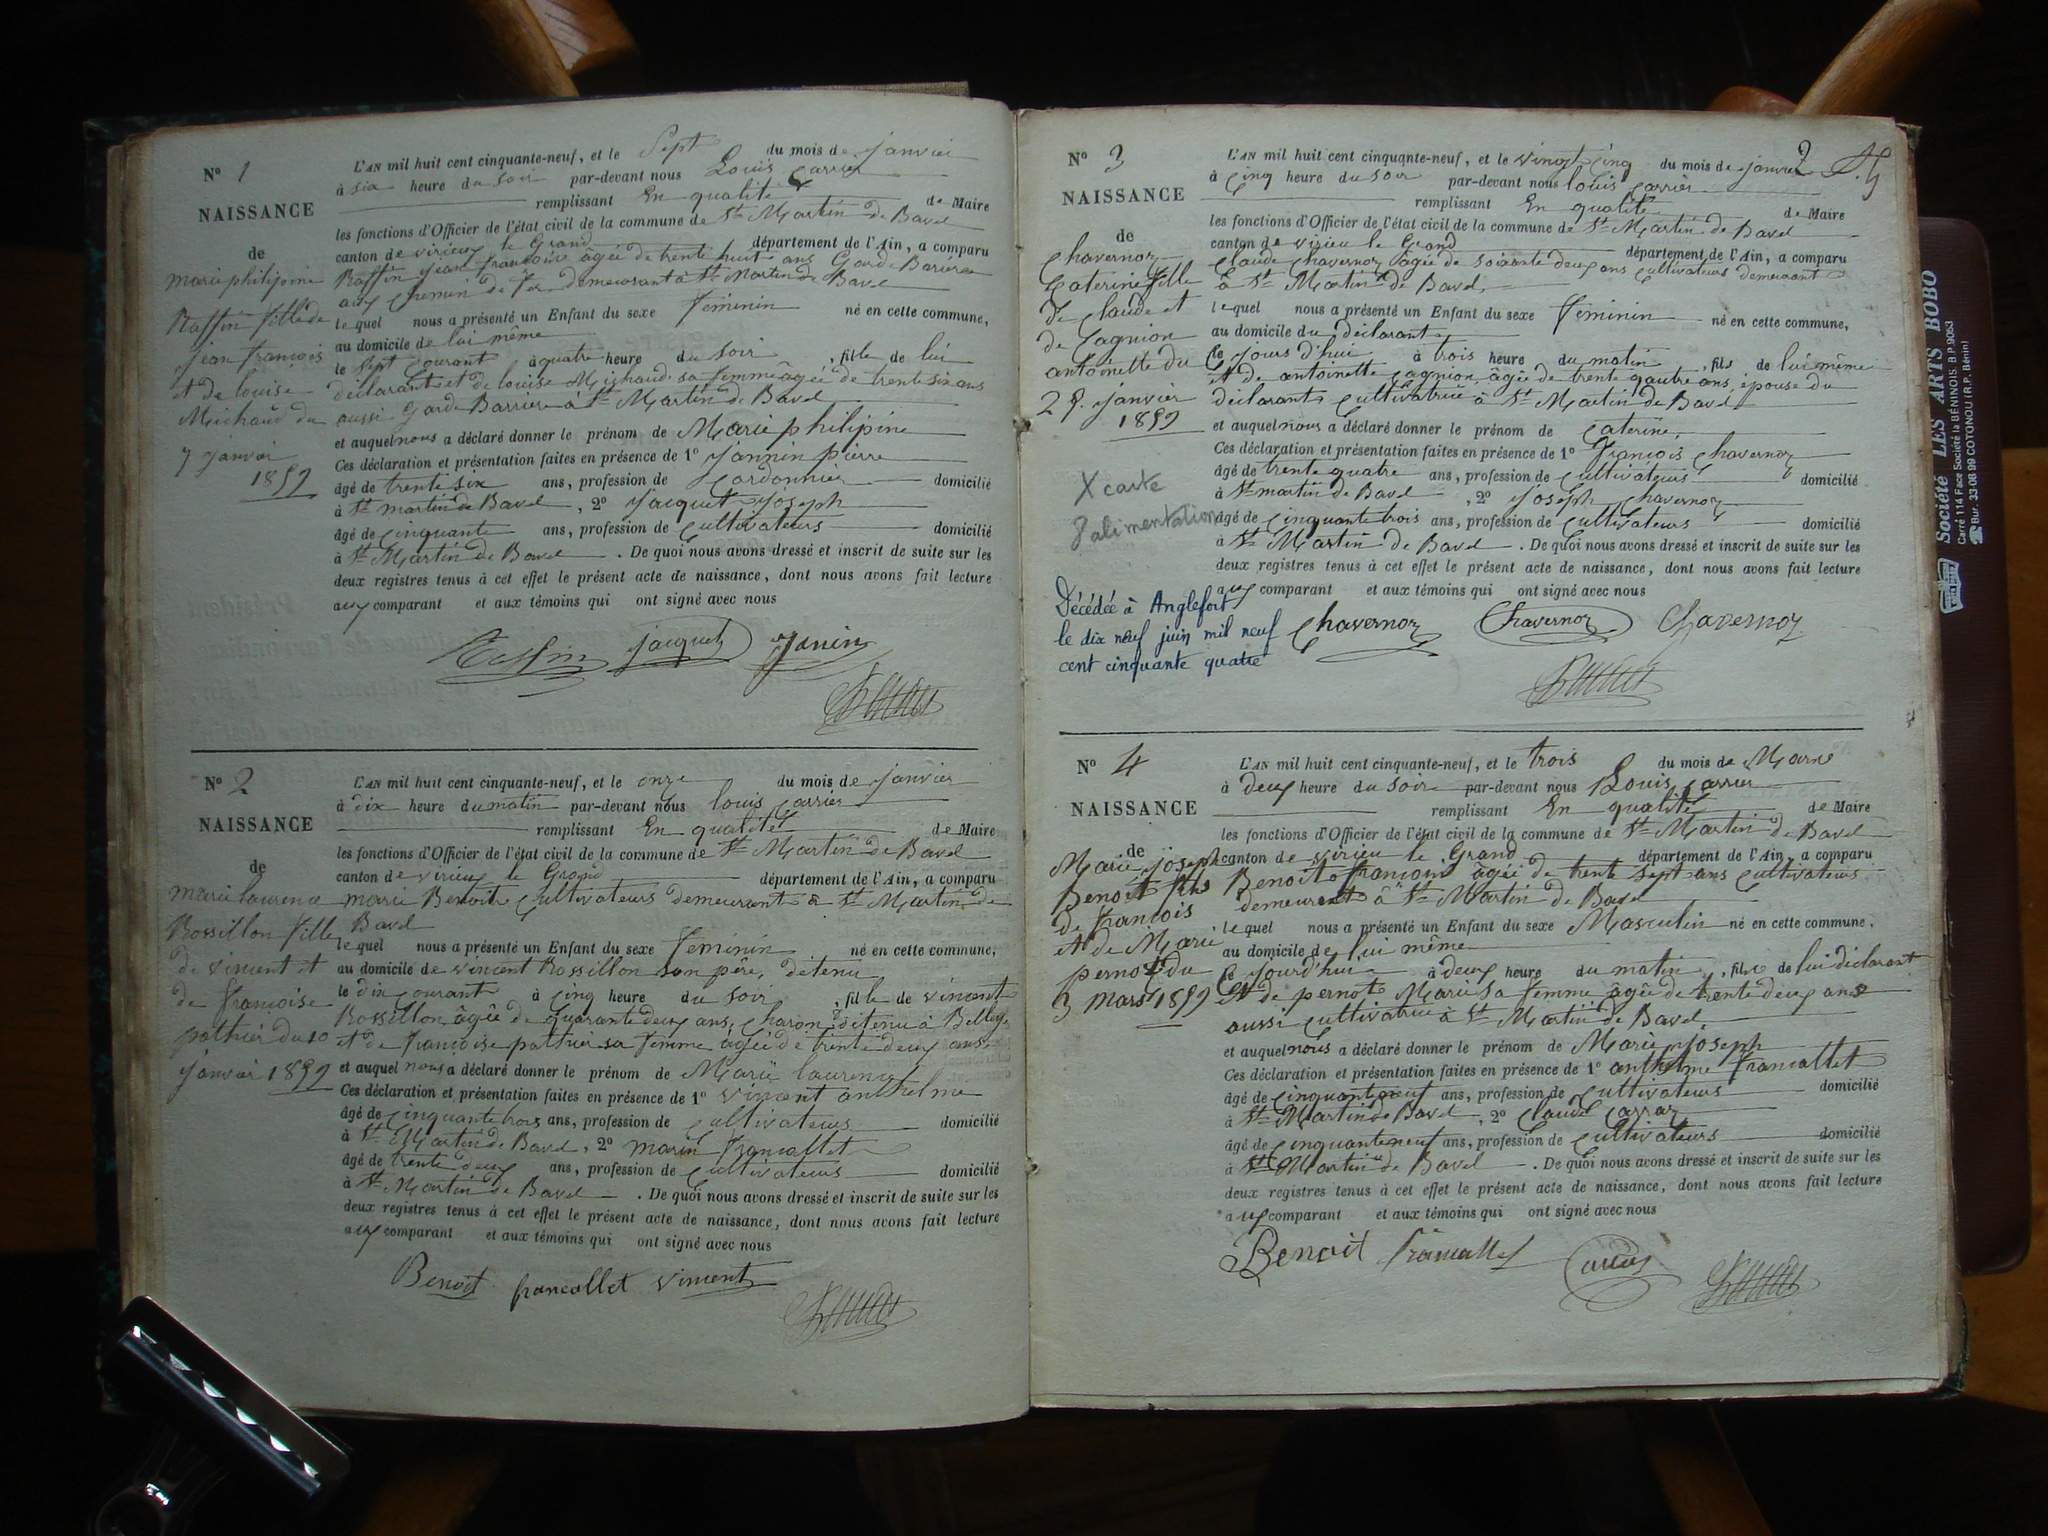 N° 1
NAISSANCE
de
marie philipine
Raffin fille de
jean françois
et de louise
Michaud du
7 janvier
1859
L'AN mil huit cent cinquante-neuf, et le Sept du mois de janvier
à six heure du soir par-devant nous Louis Carrier
remplissant En qualité de Maire
les fonctions d'Officier de l'état civil de la commune de St Martin de Bavel
canton de virieu le Grand département de l'Ain, a comparu
Raffin jean françois âgée de trente huit ans Garde Barière
aux chemin de fer demeurant à St Martin de Bavel
lequel nous a présenté un Enfant du sexe feminin né en cette commune,
au domicile de lui même
le sept courant à quatre heure du soir, fille de lui
déclarant et de louise Michaud sa femme âgée de trente six ans
aussi Garde Barriere à St Martin de Bavel
et auquel nous a déclaré donner le prénom de Marie philipine
Ces déclaration et présentation faites en présence de 1° jannin pierre
âgé de trente six ans, profession de Cordonnier domicilié
à St martin de Bavel, 2° jacquet joseph
âgé de cinquante ans, profession de Cultivateurs domicilié
à St Martin de Bavel. De quoi nous avons dressé et inscrit de suite sur les
deux registres tenus à cet effet le présent acte de naissance, dont nous avons fait lecture
aux comparant et aux témoins qui ont signé avec nous
Raffin jacquet Janin
N° 2
NAISSANCE
de
marie laurence
Rossillon fille
de vincent et
de françoise
pothier du 10
janvier 1859
L'AN mil huit cent cinquante-neuf, et le onze du mois de janvier
à dix heure du matin par-devant nous louis Carrier
remplissant En qualité de Maire
les fonctions d'Officier de l'état civil de la commune de St Martin de Bavel
canton de virieu le Grand département de l'Ain, a comparu
marie Benoit Cultivateurs demeurant à St Martin de
Bavel
lequel nous a présenté un Enfant du sexe feminin né en cette commune,
au domicile de vincent Rossillon son père, détenu
le dix courant à cinq heure du soir, fille de vincent
Rossillon âgée de quarante deux ans, charon détenu à Belley
et de françoise pothier sa femme âgée de trente deux ans
et auquel nous a déclaré donner le prénom de Marie laurence
Ces déclaration et présentation faites en présence de 1° vincent anthelme
âgé de cinquante trois ans, profession de cultivateurs domicilié
à St Martin de Bavel, 2° marin francallet
âgé de trente deux ans, profession de cultivateurs domicilié
à St Martin de Bavel. De quoi nous avons dressé et inscrit de suite sur les
deux registres tenus à cet effet le présent acte de naissance, dont nous avons fait lecture
aux comparant et aux témoins qui ont signé avec nous
Benoit francallet vincent
2
N° 3
NAISSANCE
de
Chavernoz
Caterine fille
de claude et
de Cagnion
antoinette du
25 janvier
1859
X carte
d'alimentation
Décédée à Anglefort
le dix neuf juin mil neuf
cent cinquante quatre
L'AN mil huit cent cinquante-neuf, et le vingt cinq du mois de janvier
à cinq heure du soir par-devant nous louis Carrier
remplissant En qualité de Maire
les fonctions d'Officier de l'état civil de la commune de St Martin de Bavel
canton de virieu le Grand département de l'Ain, a comparu
Claude Chavernoz âgée de soixante deux ans cultivateurs demeurant
à St Martin de Bavel,
lequel nous a présenté un Enfant du sexe feminin né en cette commune,
au domicile du déclarant
Ce jours d'hui à trois heure du matin, fils de lui même
Et de antoinette Cagnion, âgée de trente quatre ans, épouse du
déclarant Cultivatrice à St Martin de Bavel
et auquel nous a déclaré donner le prénom de Caterine,
Ces déclaration et présentation faites en présence de 1° François Chavernoz
âgé de trente quatre ans, profession de cultivateurs domicilié
à St martin de Bavel, 2° joseph Chavernoz
âgé de cinquante trois ans, profession de Cultivateurs domicilié
à St Martin de Bavel. De quoi nous avons dressé et inscrit de suite sur les
deux registres tenus à cet effet le présent acte de naissance, dont nous avons fait lecture
aux comparant et aux témoins qui ont signé avec nous
Chavernoz Chavernoz Chavernoz
N° 4
NAISSANCE
de
Marie joseph
Benoit fils
de François
et de Marie
pernot du
3 mars 1859
L'AN mil huit cent cinquante-neuf, et le trois du mois de Mars
à deux heure du soir par-devant nous Louis Carrier
remplissant En qualité de Maire
les fonctions d'Officier de l'état civil de la commune de St Martin de Bavel
canton de virieu le Grand département de l'Ain, a comparu
Benoit françois âgée de trente sept ans Cultivateurs
demeurent à St Martin de Bavel
lequel nous a présenté un Enfant du sexe Masculin né en cette commune,
au domicile de lui même
Ce jourd'hui à deux heure du matin, fils de lui déclarant
Et de pernot Marie sa femme âgée de trente deux ans
aussi cultivatrice à St Martin de Bavel,
et auquel nous a déclaré donner le prénom de Marie joseph
Ces déclaration et présentation faites en présence de 1° anthelme francallet
âgé de cinquante neuf ans, profession de cultivateurs domicilié
à St Martin de Bavel, 2° Claude Carraz
âgé de cinquante neuf ans, profession de cultivateurs domicilié
à St Martin de Bavel. De quoi nous avons dressé et inscrit de suite sur les
deux registres tenus à cet effet le présent acte de naissance, dont nous avons fait lecture
aux comparant et aux témoins qui ont signé avec nous
Benoit francallet
Société LES ARTS BOBO
Carré 114 Face Société la BÉNINOIS. B.P. 9053
Bur. 33-08 99 COTONOU (R.P. Bénin)